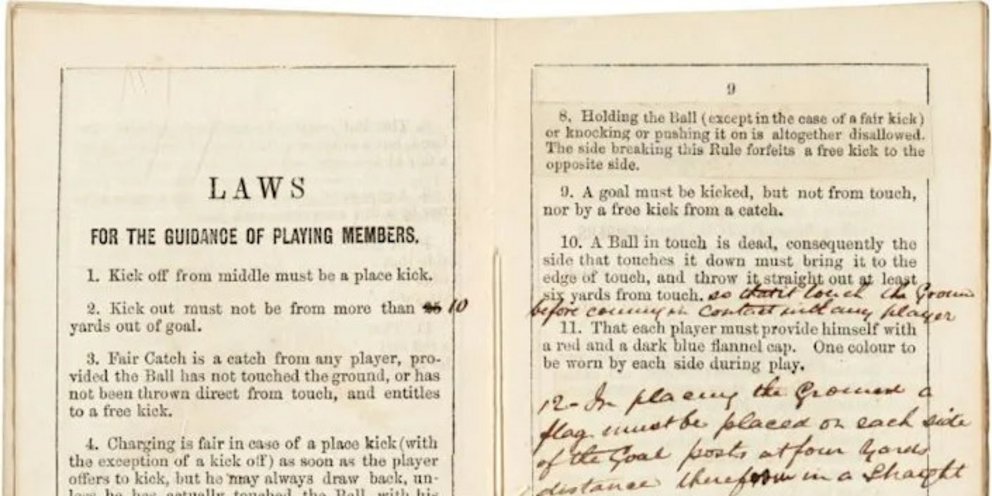 LAWS
FOR THE GUIDANCE OF PLAYING MEMBERS.
1. Kick off from middle must be a place kick.
2. Kick out must not be from more than 25 10
yards out of goal.
3. Fair Catch is a catch from any player, pro-
vided the Ball has not touched the ground, or has
not been thrown direct from touch, and entitles
to a free kick.
4. Charging is fair in case of a place kick (with
the exception of a kick off) as soon as the player
offers to kick, but he may always draw back, un-
less he has actually touched the Ball with his
9
8. Holding the Ball (except in the case of a fair kick)
or knocking or pushing it on is altogether disallowed.
The side breaking this Rule forfeits a free kick to the
opposite side.
9. A goal must be kicked, but not from touch,
nor by a free kick from a catch.
10. A Ball in touch is dead, consequently the
side that touches it down must bring it to the
edge of touch, and throw it straight out at least
six yards from touch. so that it touch the Ground
before coming in contact with any player
11. That each player must provide himself with
a red and a dark blue flannel cap. One colour to
be worn by each side during play.
12- In placing the Ground a
flag must be placed on each side
of the Goal posts at four Yards
distance therefrom in a Straight